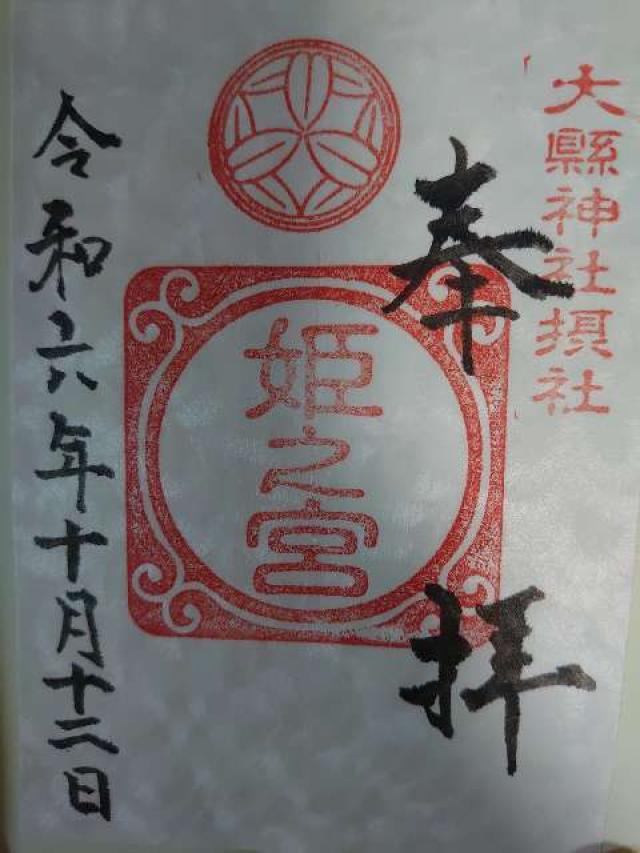 大縣神社摂社
奉拝
姫之宮
令和六年十月十二日